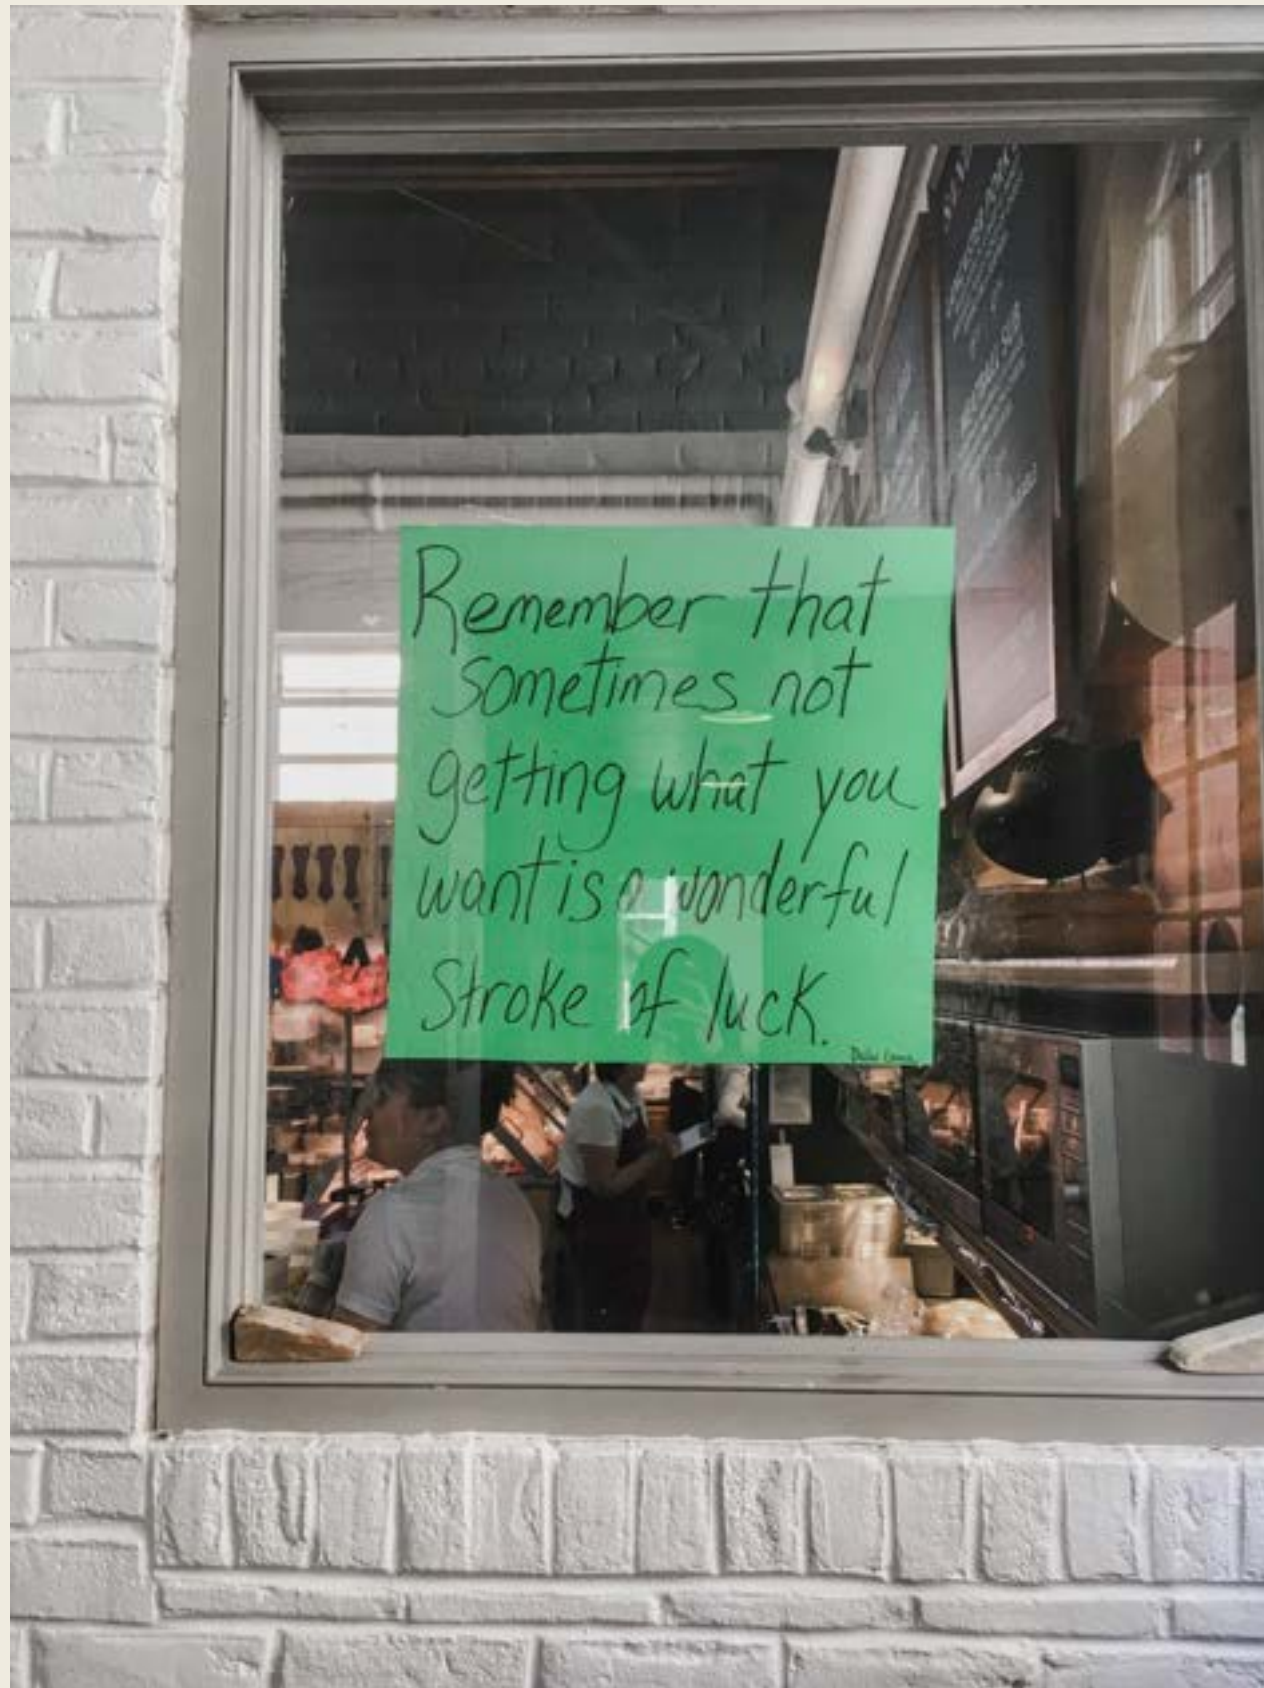 Remember that
sometimes not
getting what you
want is a wonderful
Stroke of luck.